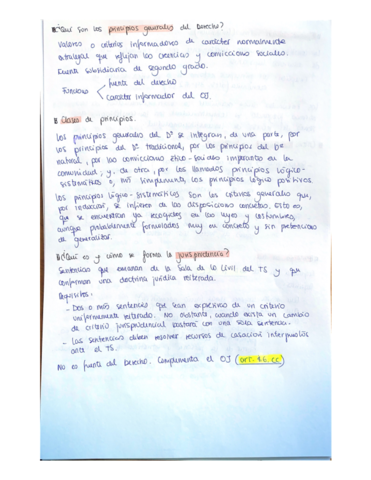 ¿Qué son los principios generales del Derecho?
Valores o criterios informadores de carácter normalmente
extralegal que reflejan las creencias y convicciones sociales.
Fuente subsidiaria de segundo grado.
Funciones
fuente del derecho
carácter informador del OJ.
Clases de principios.
Los principios generales del Dº se integran, de una parte, por
los principios del Dº tradicional, por los principios del Dº
natural, por las convicciones ético-sociales imperantes en la
comunidad, y, de otra, por los llamados principios lógico-
sistemáticos o, más simplemente, los principios lógico positivos.
Los principios lógico-sistemáticos son los criterios generales que,
por inducción, se infieren de las disposiciones concretas, esto es,
que se encuentran ya recogidos en las leyes y costumbres,
aunque probablemente formulados muy en concreto y sin pretensiones
de generalidad.
¿Qué es y cómo se forma la jurisprudencia?
Sentencias que emanan de la Sala de lo Civil del TS y que
conforman una doctrina jurídica reiterada.
Requisitos.
- Dos o más sentencias que sean expresivas de un criterio
uniformemente reiterado. No obstante, cuando exista un cambio
de criterio jurisprudencial bastará con una sola sentencia.
- Las sentencias deben resolver recursos de casación interpuestos
ante el TS.
No es fuente del Derecho. Complementa el OJ (art. 1.6. CC)